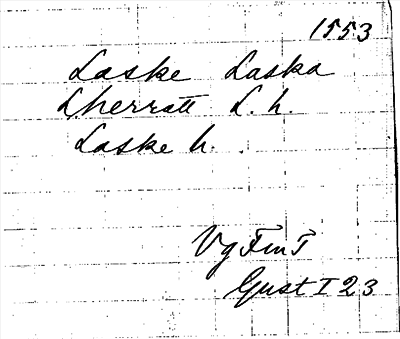 1553
Laske Laska
Lherratt L. h
Laske h.
Vg Fm I
Gust I 23